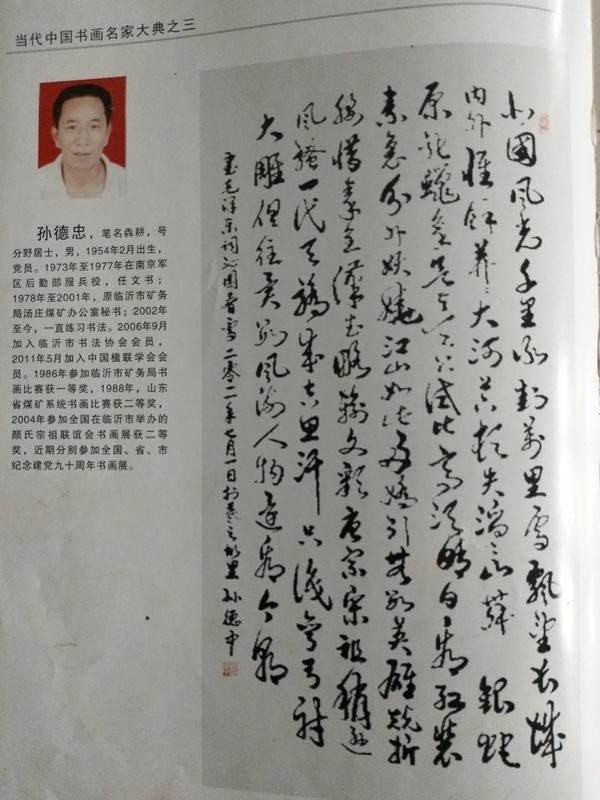 当代中国书画名家大典之三
孙德忠，笔名犇耕，号
分野居士，男，1954年2月出生，
党员。1973年至1977年在南京军
区后勤部服兵役，任文书；
1978年至2001年，原临沂市矿务
局汤庄煤矿办公室秘书；2002年
至今，一直练习书法。2006年9月
加入临沂市书法协会会员，
2011年5月加入中国楹联学会会
员。1986年参加临沂市矿务局书
画比赛获一等奖，1988年，山东
省煤矿系统书画比赛获二等奖，
2004年参加全国在临沂市举办的
颜氏宗祖联谊会书画展获二等
奖，近期分别参加全国、省、市
纪念建党九十周年书画展。
北國风光千里冰封万里雪飘望长城
内外惟余莽莽大河上下顿失滔滔山舞银蛇
原驰蜡象欲与天公试比高须晴日看红装
素裹分外妖娆江山如此多娇引无数英雄竞折
腰惜秦皇汉武略输文彩唐宗宋祖稍逊
风骚一代天骄成吉思汗只识弯弓射
大雕俱往矣数风流人物还看今朝
书毛泽东词沁园春雪二零一一年七月一日於羲之故里孙德中